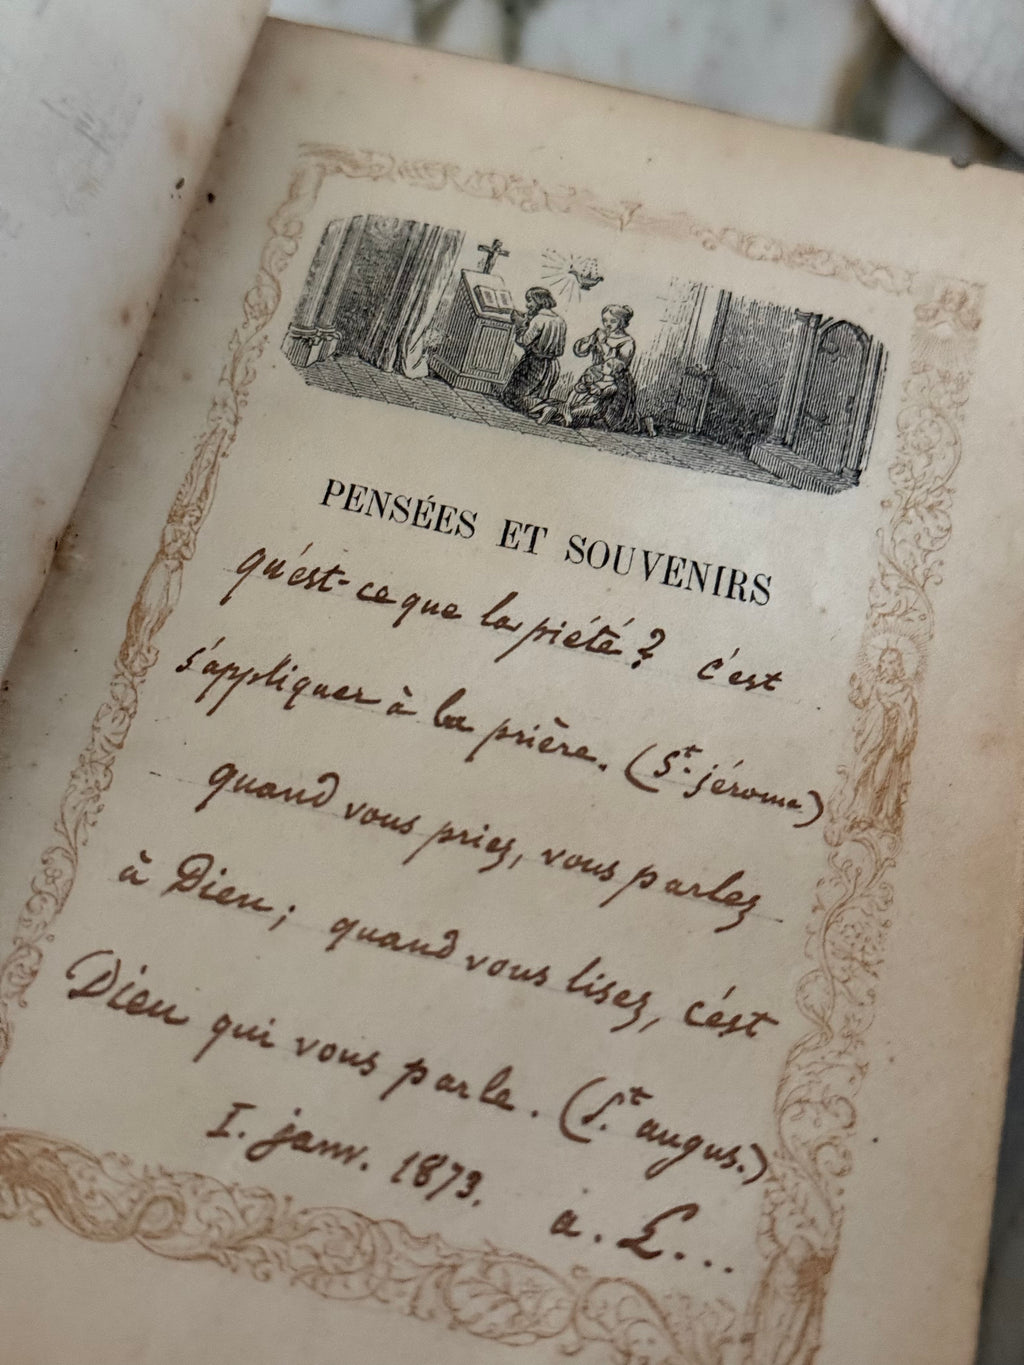 PENSÉES ET SOUVENIRS
qu'est-ce que la piété? c'est
s'appliquer à la prière. (St. jérome)
quand vous priez, vous parlez
à Dieu; quand vous lisez, c'est
Dieu qui vous parle. (St. augus.)
I. janv. 1873.
a. L...